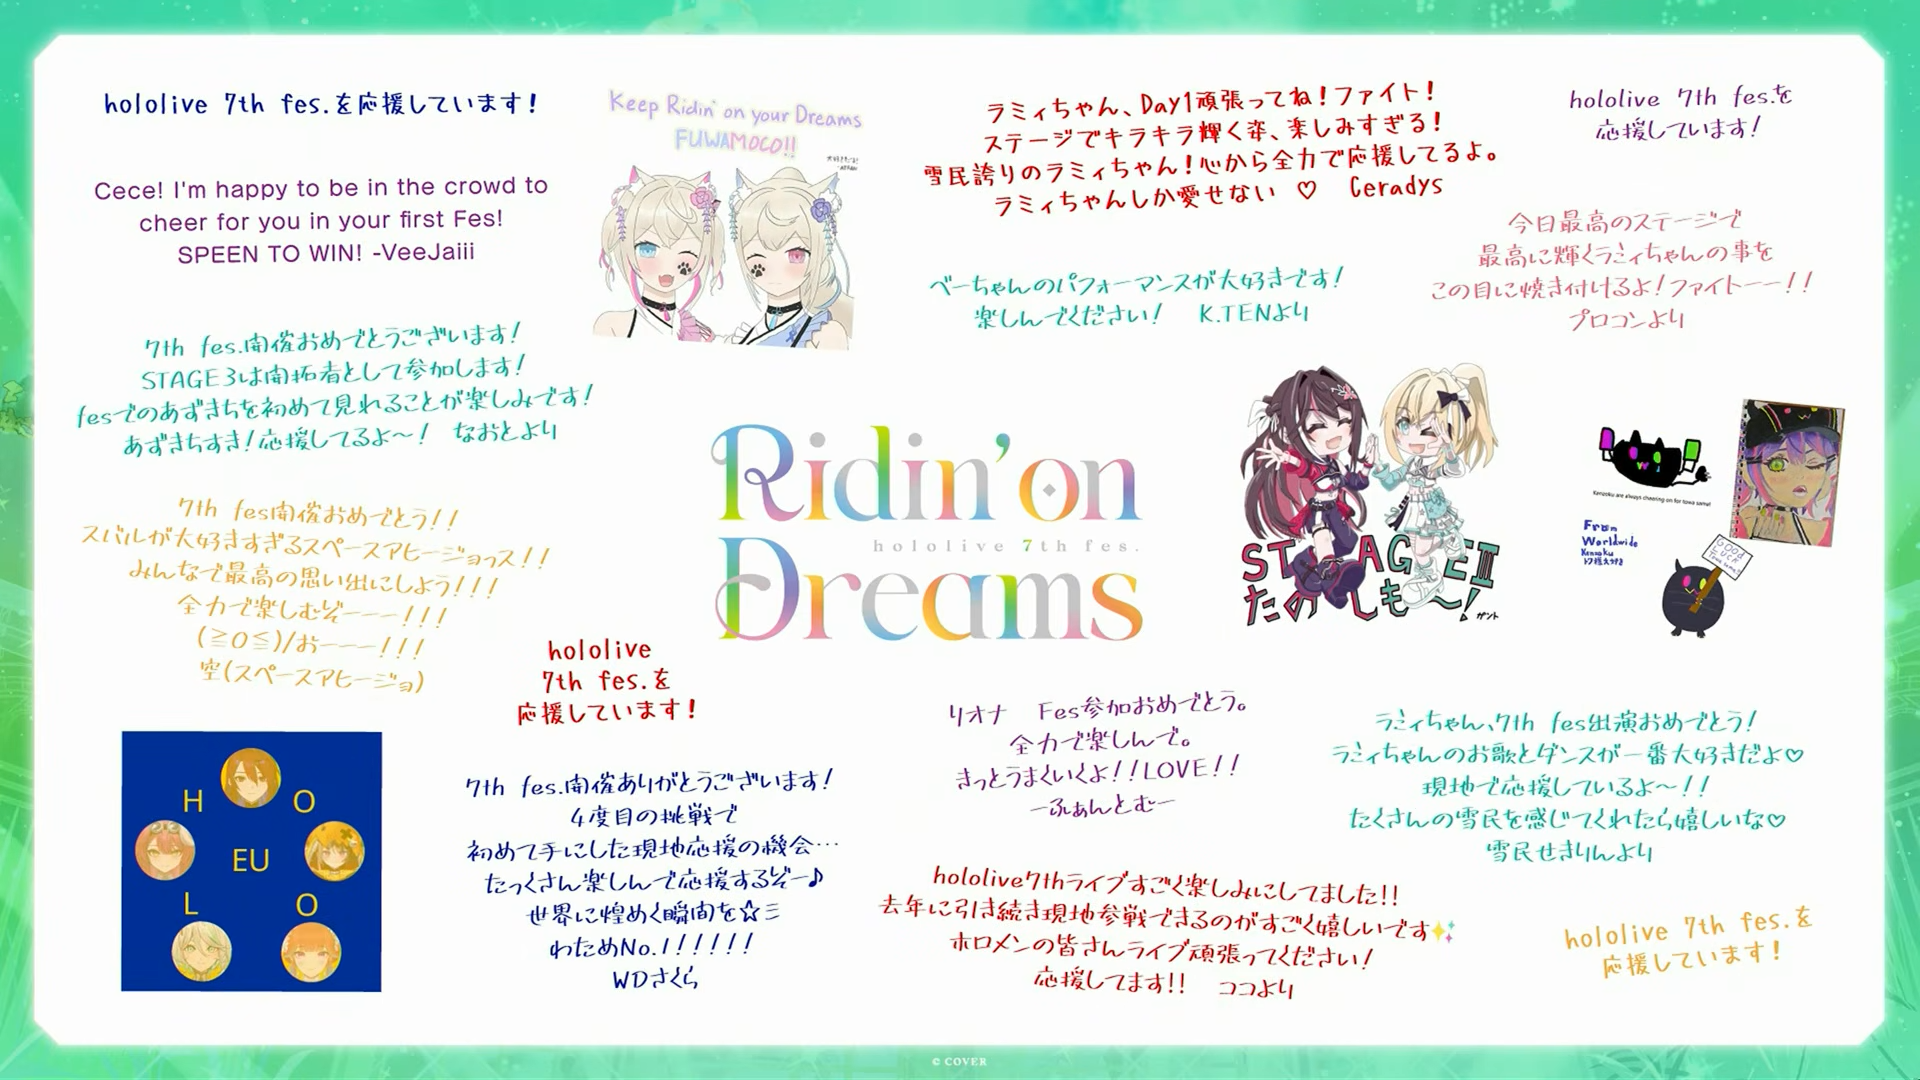 hololive 7th fes.を応援しています！
Cece! I'm happy to be in the crowd to
cheer for you in your first Fes!
SPEEN TO WIN! -VeeJaiii
Keep Ridin' on your Dreams
FUWAMOCO!!
ラミィちゃん、Day1頑張ってね！ファイト！
ステージでキラキラ輝く姿、楽しみすぎる！
雪民誇りのラミィちゃん！心から全力で応援してるよ。
ラミィちゃんしか愛せない ♡ Ceradys
hololive 7th fes.を
応援しています！
今日最高のステージで
最高に輝くラミィちゃんの事を
この目に焼き付けるよ！ファイトーー！！
プロコンより
べーちゃんのパフォーマンスが大好きです！
楽しんでください！ K.TENより
7th fes.開催おめでとうございます！
STAGE3は開拓者として参加します！
fesでのあずきちを初めて見れることが楽しみです！
あずきちすき！応援してるよ～！ なおとより
7th fes開催おめでとう！！
スバルが大好きすぎるスペースアヒージョっス！！
みんなで最高の思い出にしよう！！！
全力で楽しむぞーーー！！！
(≧O≦)/おーーー！！！
空(スペースアヒージョ)
Ridin' on
hololive 7th fes.
Dreams
STAGEⅢ
たのしも～！
ガント
Kenzoku are always cheering on for towa sama!
From
Worldwide
Kenzoku
GOOD
LUCK
hololive
7th fes.を
応援しています！
H O
EU
L O
7th fes.開催ありがとうございます！
4度目の挑戦で
初めて手にした現地応援の機会…
たっくさん楽しんで応援するぞー♪
世界に煌めく瞬間を☆ミ
わためNo.1！！！！！！
WDさくら
リオナ Fes参加おめでとう。
全力で楽しんで。
きっとうまくいくよ！！LOVE！！
ーふぁんとむー
ラミィちゃん、7th fes出演おめでとう！
ラミィちゃんのお歌とダンスが一番大好きだよ♡
現地で応援しているよ～！！
たくさんの雪民を感じてくれたら嬉しいな♡
雪民せきりんより
hololive7thライブすごく楽しみにしてました!!
去年に引き続き現地参戦できるのがすごく嬉しいです✨
ホロメンの皆さんライブ頑張ってください！
応援してます!! ココより
hololive 7th fes.を
応援しています！
© COVER